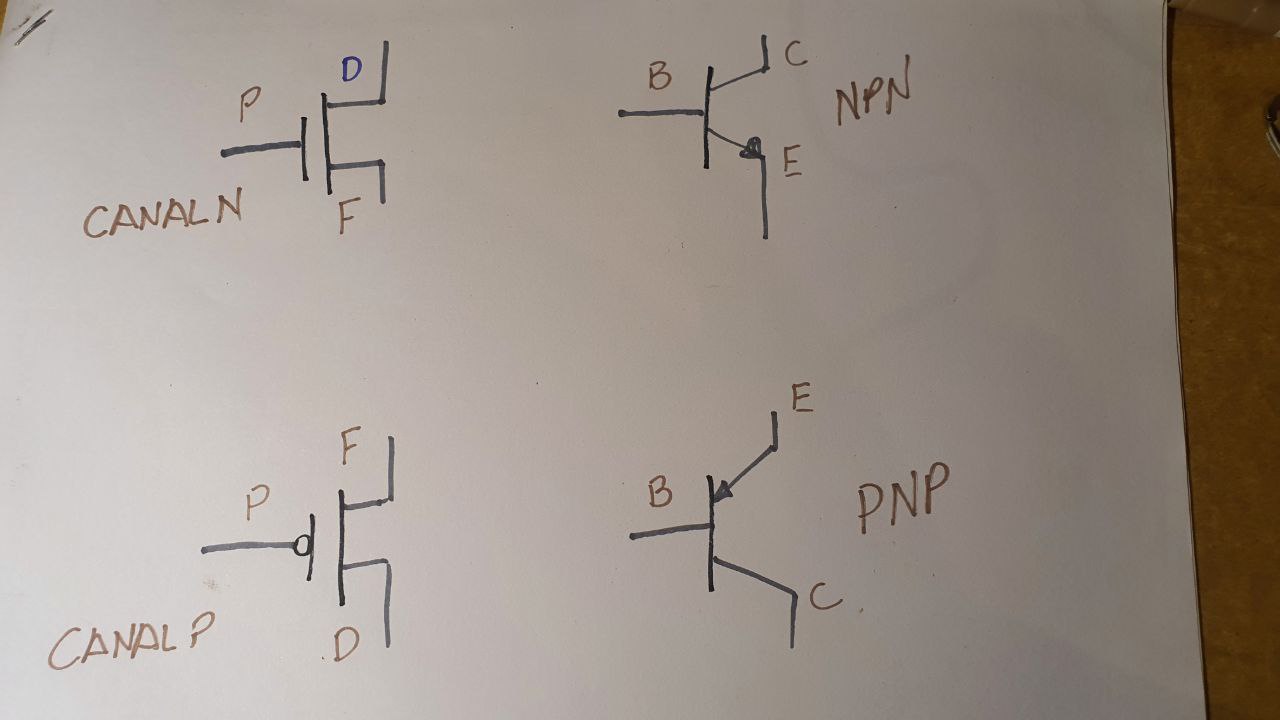 D
P
CANAL N
F
B
C
NPN
E
F
P
CANAL P
D
E
B
PNP
C